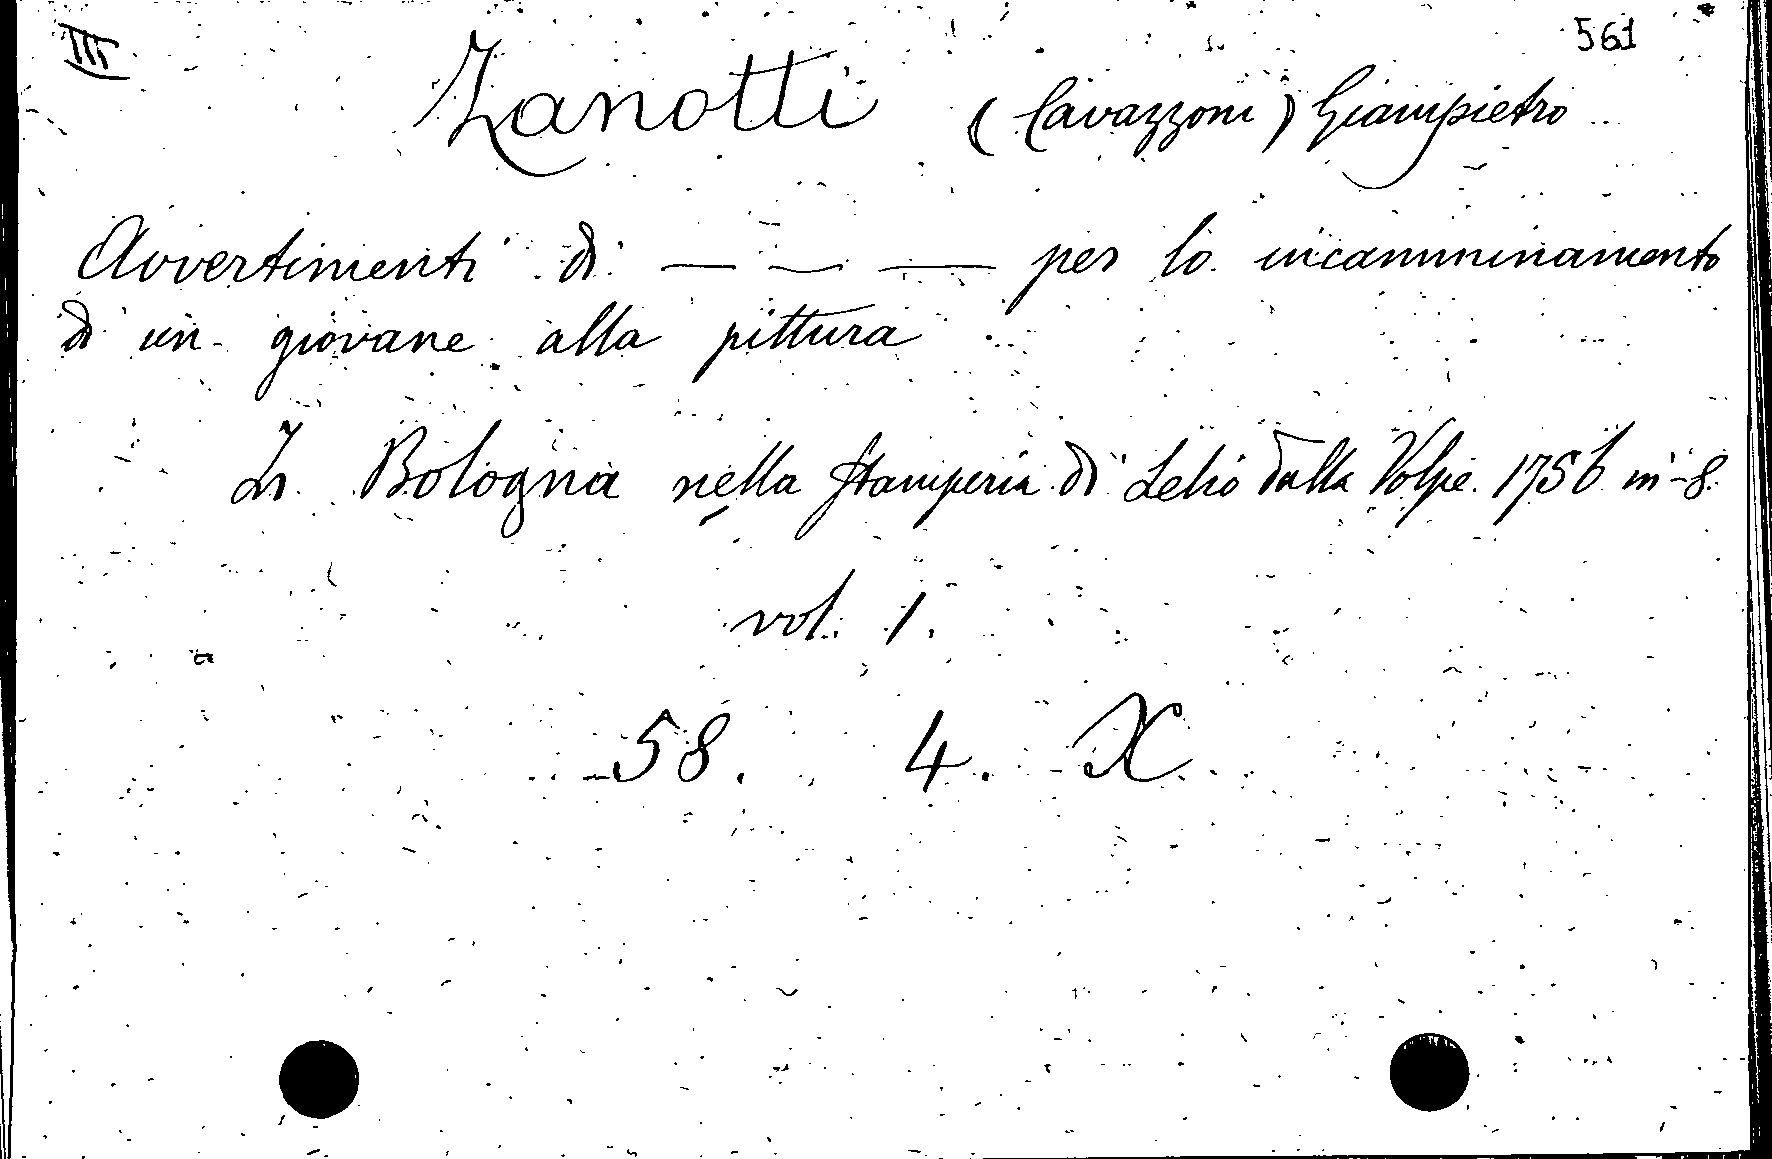 III 561
Zanotti (Cavazzoni) Giampietro
Avvertimenti di — — — per lo incamminamento
di un giovane alla pittura
In Bologna nella Stamperia di Lelio dalla Volpe. 1756 in-8.
vol. 1.
58. 4. X.